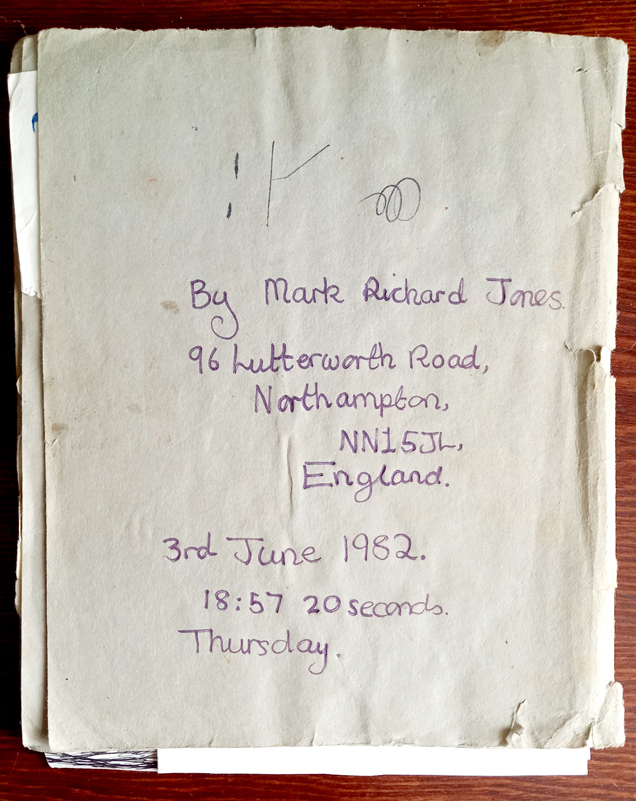 By Mark Richard Jones.
96 Lutterworth Road,
Northampton,
NN15JL,
England.
3rd June 1982.
18:57 20 seconds.
Thursday.